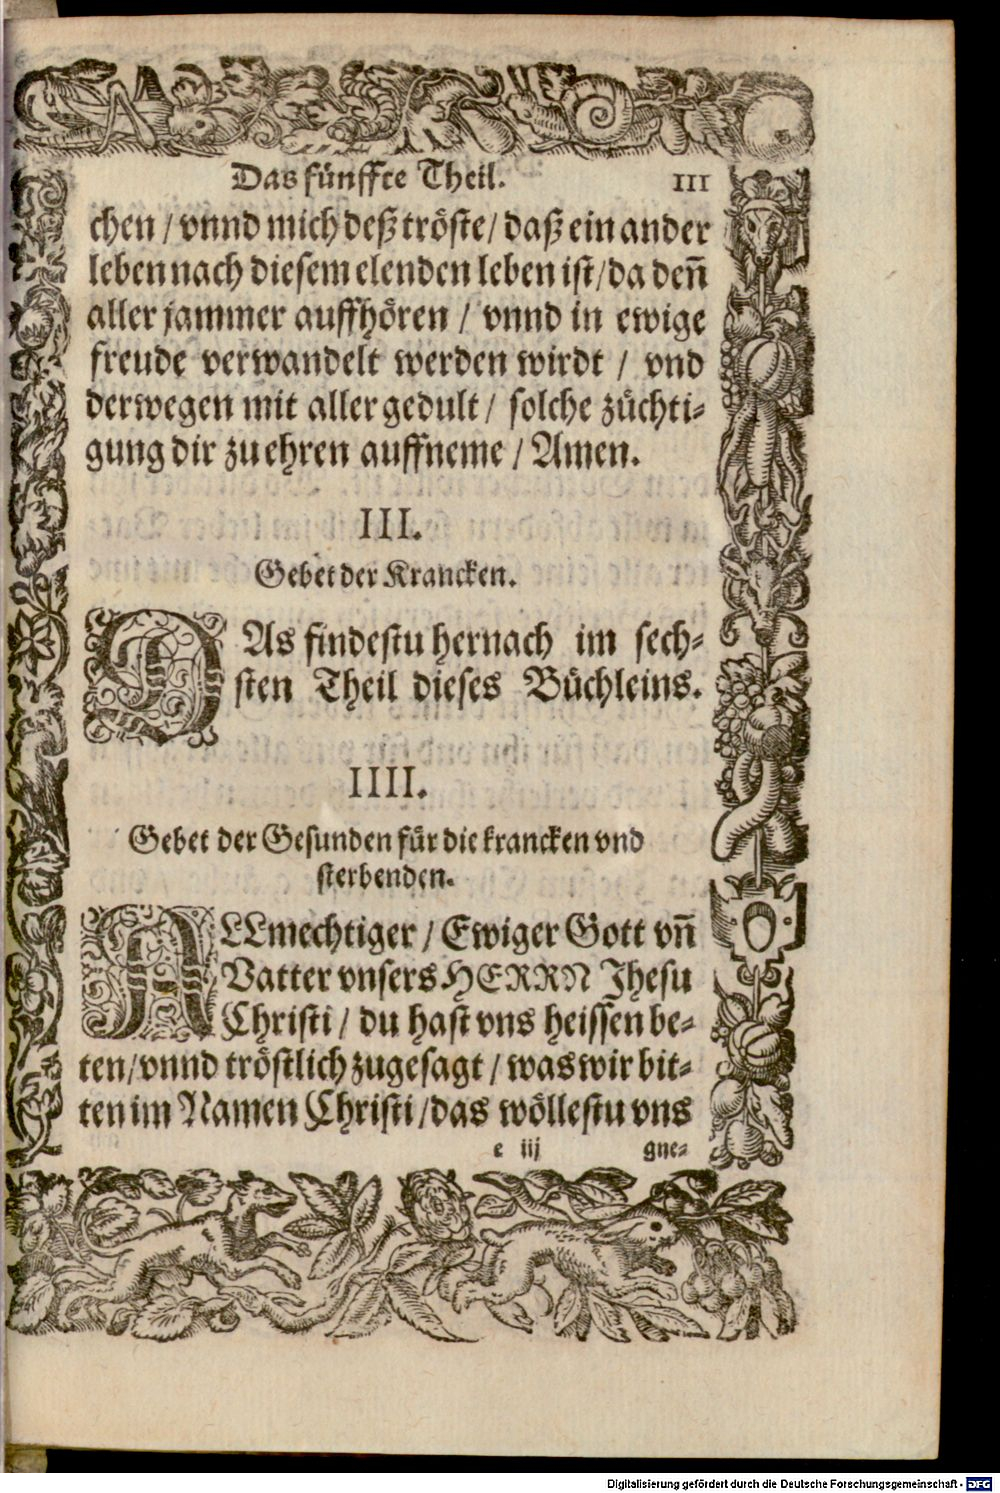 Das fünffte Theil. 111
chen / vnnd mich deß tröste / daß ein ander
leben nach diesem elenden leben ist / da deñ
aller jammer auffhören / vnnd in ewige
freude verwandelt werden wirdt / vnd
derwegen mit aller gedult / solche züchti-
gung dir zu ehren auffneme / Amen.
III.
Gebet der Krancken.
DAs findestu hernach im sech-
sten Theil dieses Büchleins.
IIII.
Gebet der Gesunden für die krancken vnd
sterbenden.
ALLmechtiger / Ewiger Gott vñ
Vatter vnsers HERRN Jhesu
Christi / du hast vns heissen be-
ten / vnnd tröstlich zugesagt / was wir bit-
ten im Namen Christi / das wöllestu vns
e iij gne-
Digitalisierung gefördert durch die Deutsche Forschungsgemeinschaft - DFG